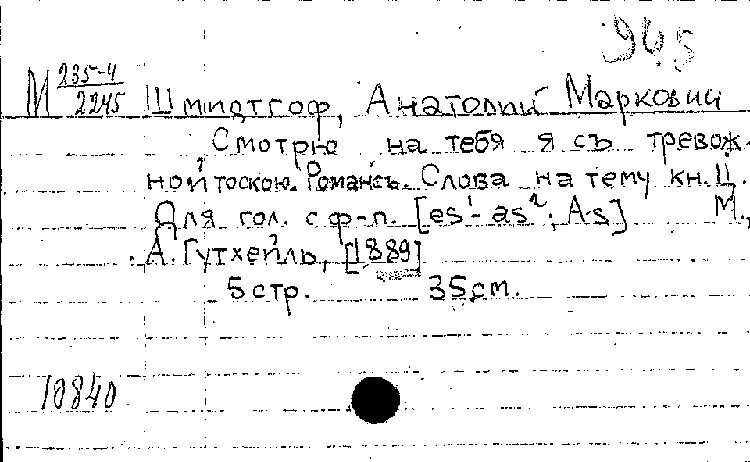 945
М 235-4/2245 Шмидтгоф, Анатолий Маркович
Смотрю на тебя я съ тревож-
ной тоскою. Романсъ. Слова на тему кн. Ц.
Для гол. с ф-п. [es¹- as²; As] М.,
А. Гутхейль, [1889]
5 стр. 35 см.
10840